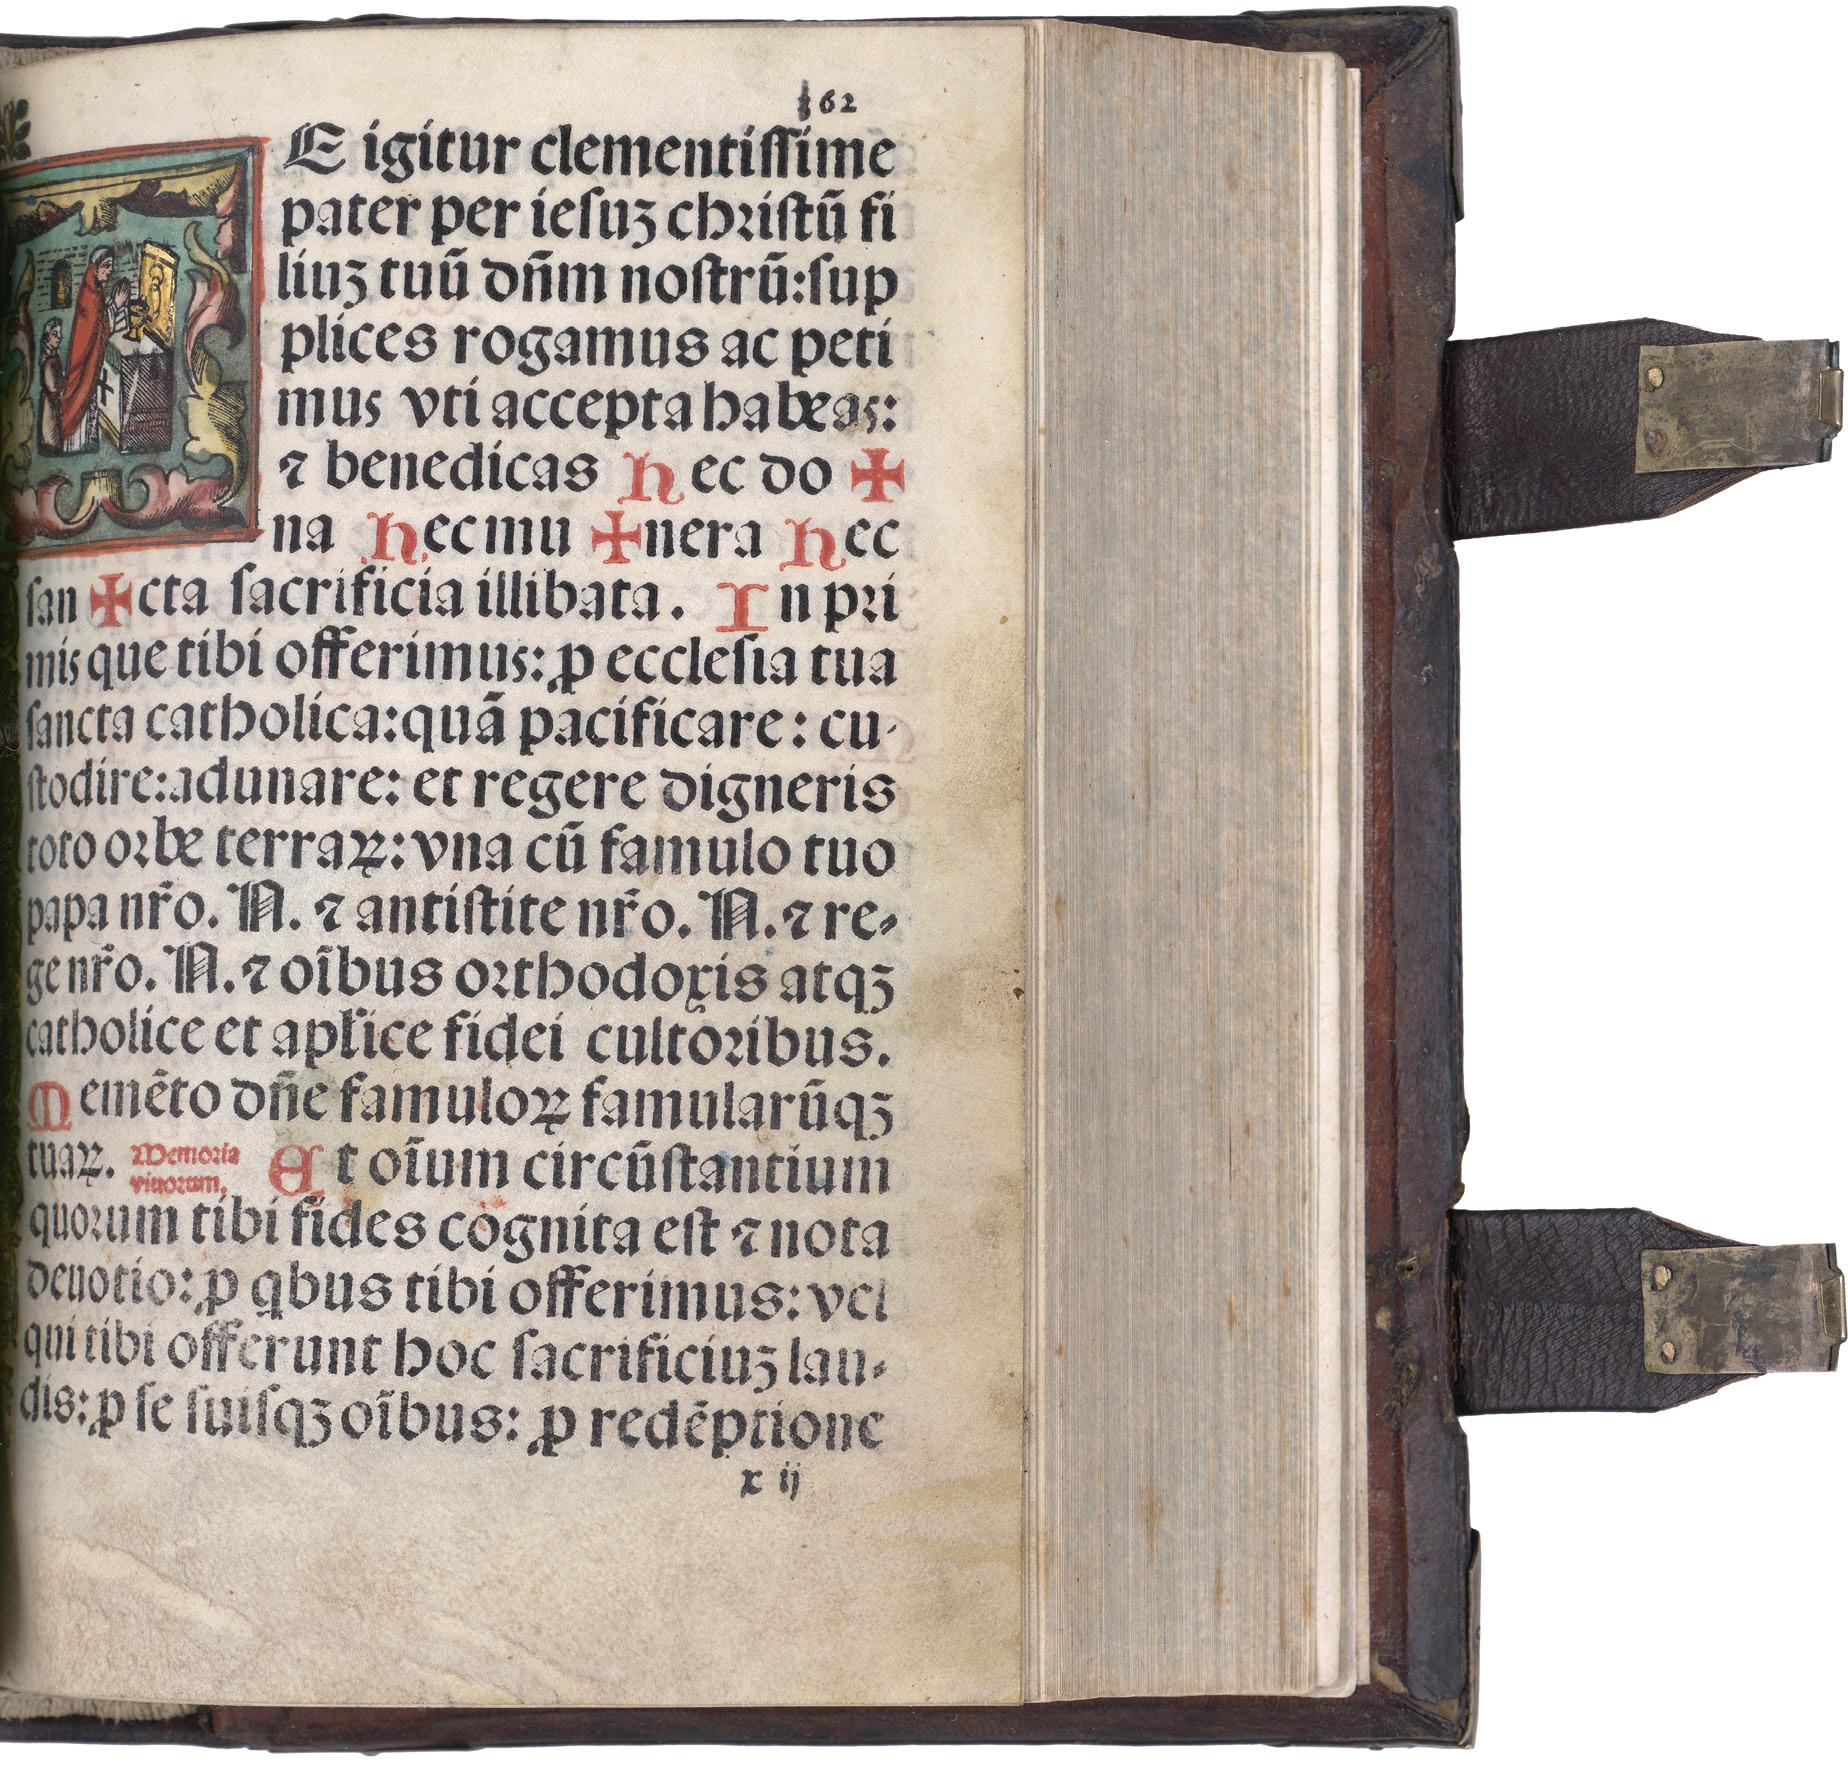 162
E igitur clementiſſime
pater per ieſuꝫ chꝛiſtū fi
liuꝫ tuū dn̄m noſtrū:ſup
plices rogamus ac peti
mus vti accepta habeas:
⁊ benedicas hec do ✠
na hec mu ✠ nera hec
ſan ✠ cta ſacrificia illibata. In pꝛi
mis que tibi offerimus: ꝓ eccleſia tua
ſancta catholica: quā pacificare: cu-
ſtodire: adunare: et regere digneris
toto oꝛbe terraꝝ: vna cū famulo tuo
papa nr̄o. N. ⁊ antiſtite nr̄o. N. ⁊ re-
ge nr̄o. N. ⁊ oībus oꝛthodoxis atqꝫ
catholice et apl̄ice fidei cultoꝛibus.
Memēto dn̄e famuloꝝ famularūqꝫ
tuaꝝ. Memoꝛia viuoꝛum. Et oīum circūſtantium
quoꝛum tibi fides cognita eſt ⁊ nota
deuotio: ꝓ qbus tibi offerimus: vel
qui tibi offerunt hoc ſacrificiuꝫ lau-
dis: ꝓ ſe ſuiſqꝫ oībus: ꝓ redēptione
x ij